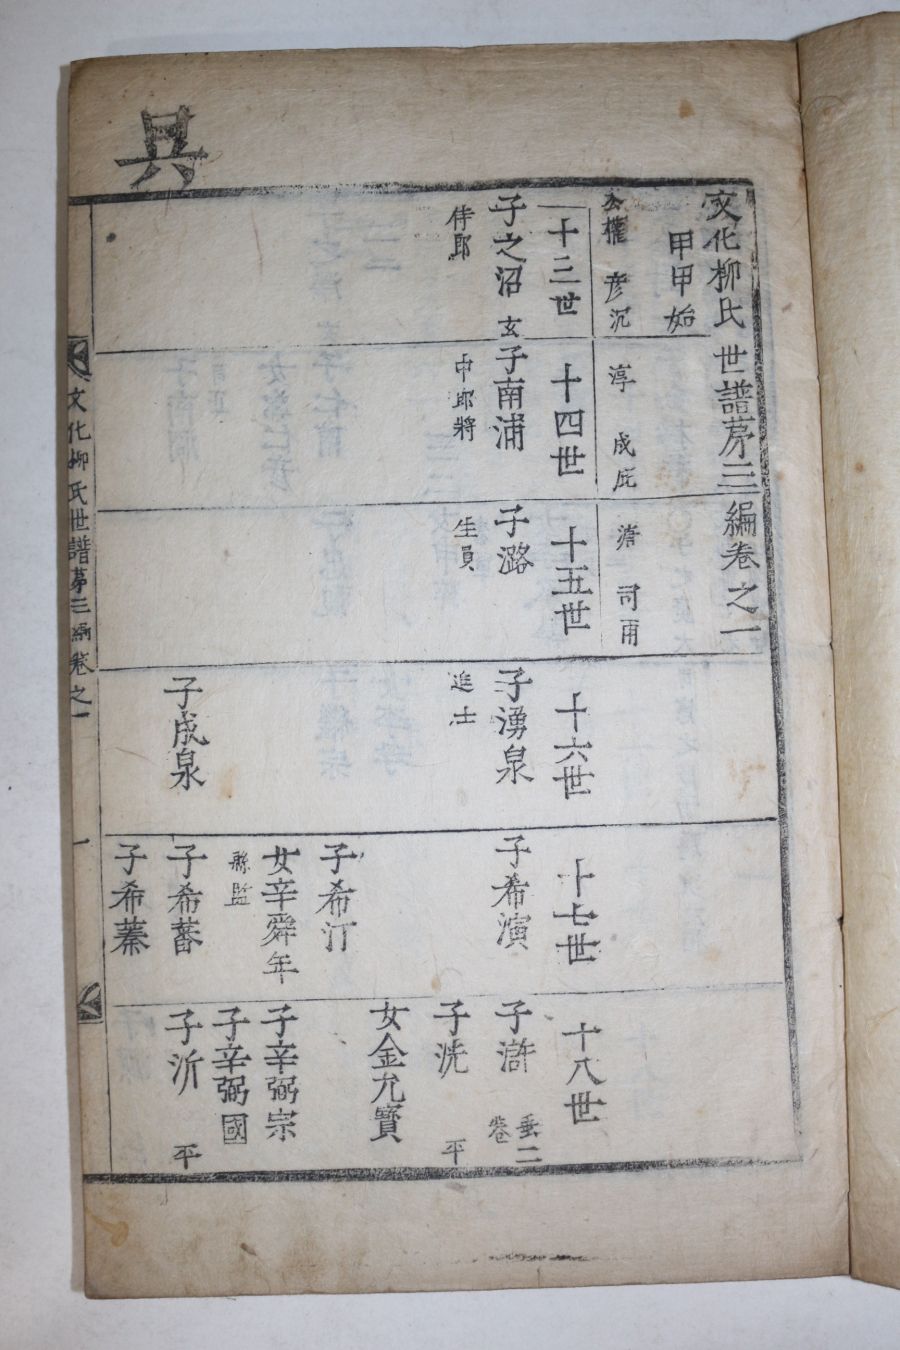 文化柳氏世譜苐三編卷之一
甲甲始
公權 彦沉
淳 成庇
澹 司雨
十三世
十四世
十五世
十六世
十七世
十八世
子之沼 玄
侍郎
子南浦
中郎將
子潞
生員
子湧泉
進士
子成泉
子希演
子希汀
女辛舜年
縣監
子希蕃
子希蓁
子滸 垂二卷
子洗 平
女金允寶
子辛弼宗
子辛弼國
子沂 平
文化柳氏世譜苐三編卷之一
一